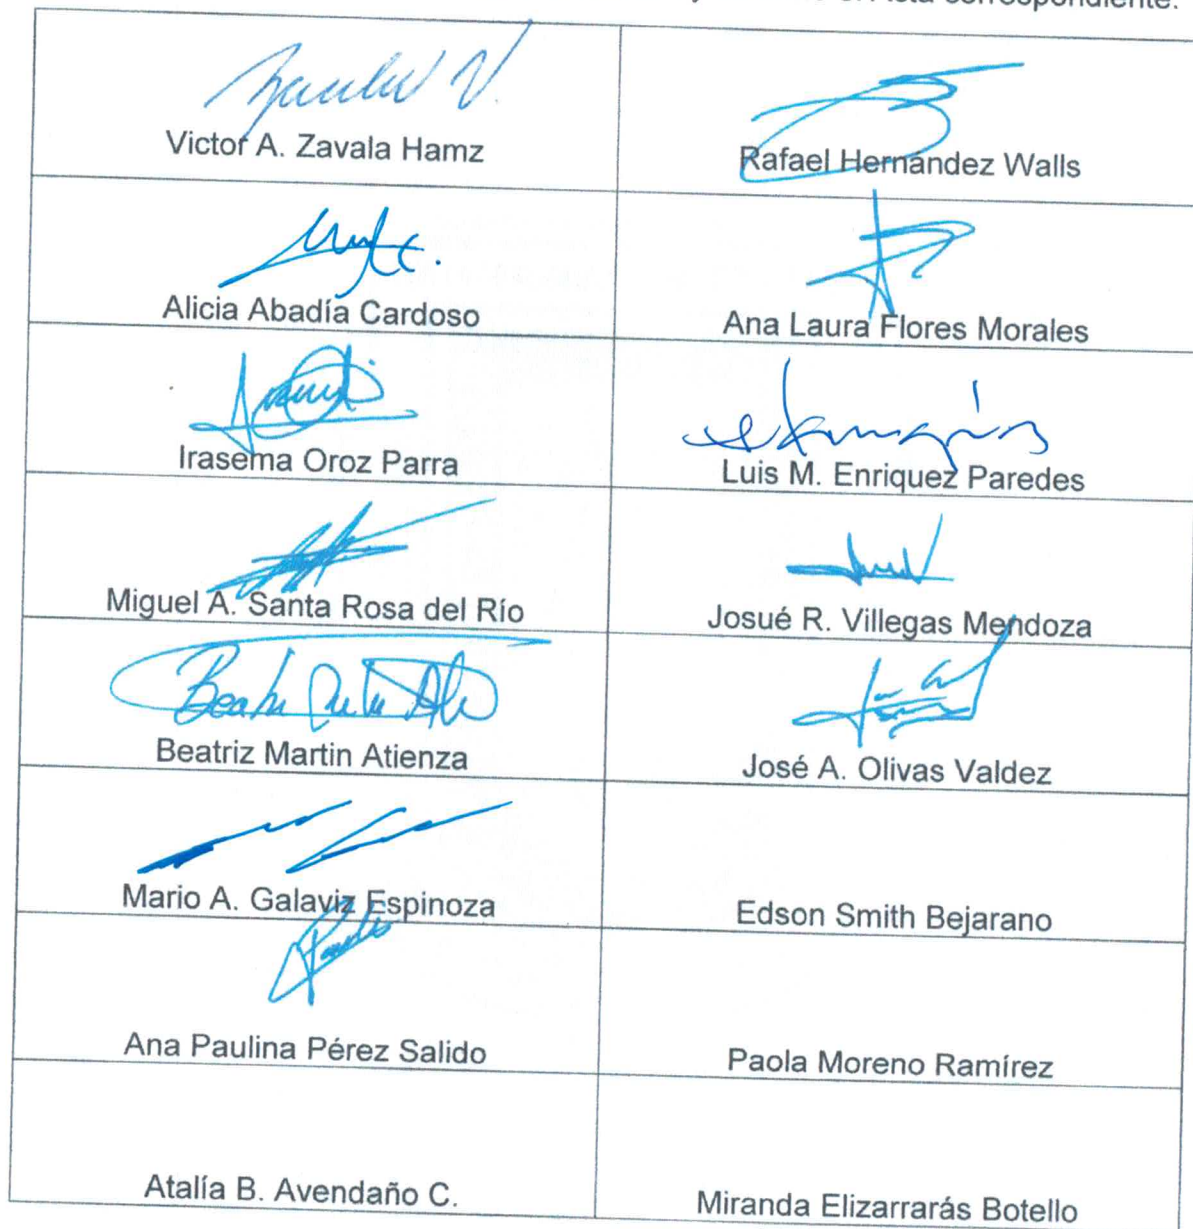 correspondiente.
Victor A. Zavala Hamz
Rafael Hernández Walls
Alicia Abadía Cardoso
Ana Laura Flores Morales
Irasema Oroz Parra
Luis M. Enriquez Paredes
Miguel A. Santa Rosa del Río
Josué R. Villegas Mendoza
Beatriz Martin Atienza
José A. Olivas Valdez
Mario A. Galaviz Espinoza
Edson Smith Bejarano
Ana Paulina Pérez Salido
Paola Moreno Ramírez
Atalía B. Avendaño C.
Miranda Elizarrarás Botello